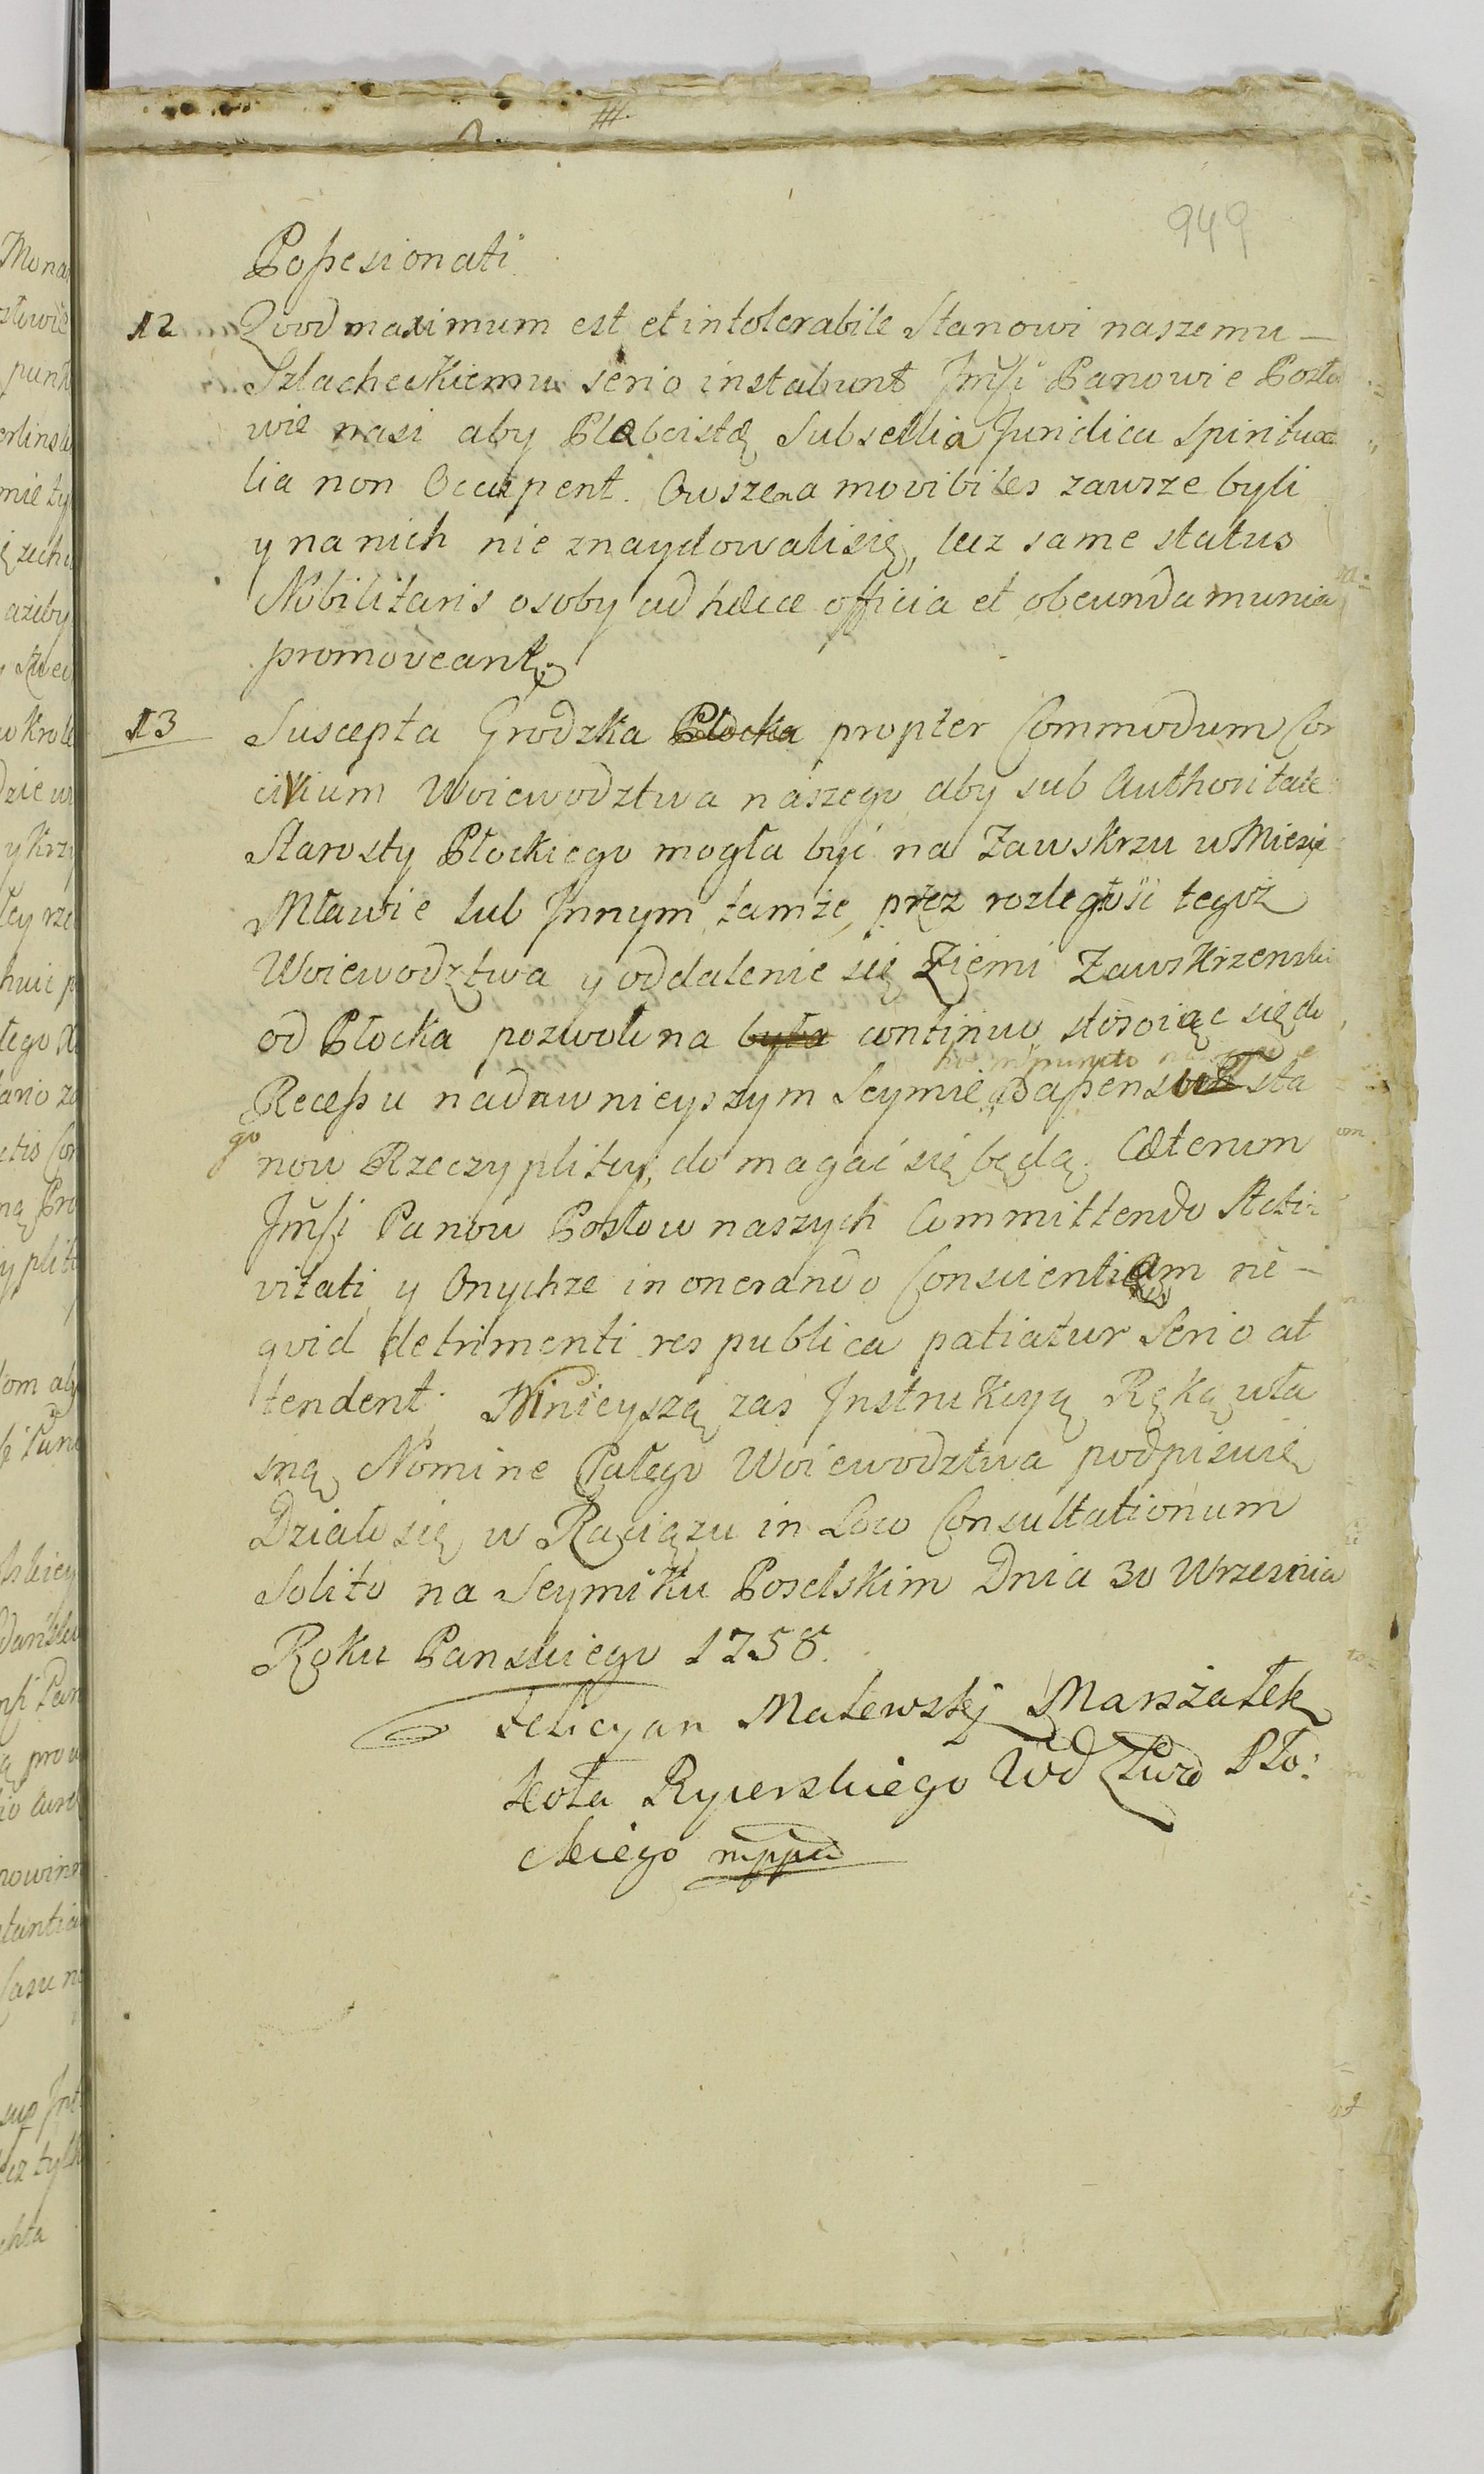 949
Possesionati
12 Qvod maximum est et intolerabile Stanowi naszemu —
Szlacheckiemu serio instabunt Jmsi Panowie Posło
wie nasi aby Plebeistę Subsellia Juridica spiritua
lia non Occupent. Owszem amovibiles zawsze byli
y na nich nie znaydowali się, lecz same status
Nobilitaris osoby ad hæce officia et obeunda munia
promoveant
13 Suscepta Grodzka Płocka propter Commodum Con
civium Woiewodztwa naszego aby sub Authoritate
Starosty Płockiego mogła być na Zawskrzu w Mieście
Mławie lub Jnnym tamże, przez rozległość tegoż
Woiewodztwa y oddalenie się Ziemi Zawskrzenski
od Płocka pozwolona była continuo stosoiąc się do
Recessu nadawnieyszym Seymie zapensu sta
go
now Rzeczyplitey, do magać się będą. Cæterum
Jmsi Panow Posłow naszych Committendo Acti
vitati y Onychże in onerando Conscientiam ne —
qvid detrimenti res publica patiatur Serio at
tendent. Ninieyszą zaś Jnstrukcyą Ręką wła
sną Nomine Całego Woiewodztwa podpisuię
Działo się w Raciążu in Loco Consultationum
Solito na Seymiku Poselskim Dnia 30 Wrzesnia
Roku Panskiego 1758.
Felicyan Malewskj Marszałek
koła Rycerskiego Wdztwa Pło:
ckiego mppa